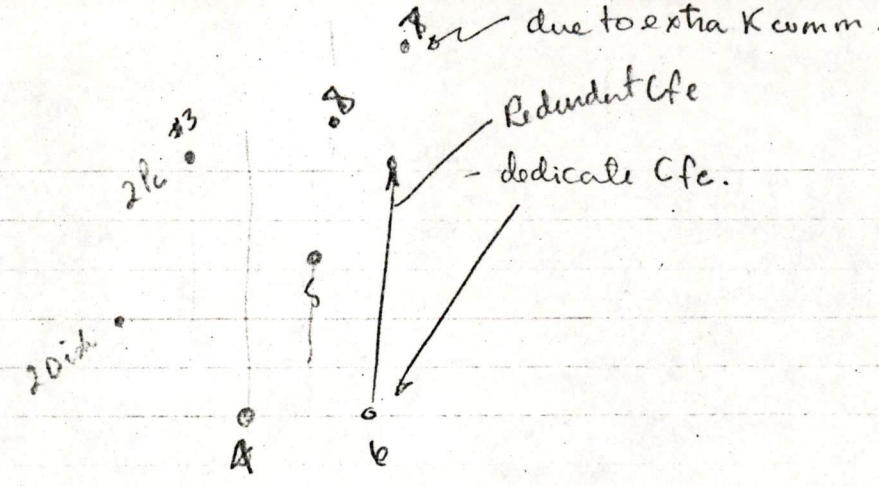 8
due to extra K comm.
8
Redundent Cfe
- dedicate Cfe.
#3
2 Pc
5
2 Dish
4
6